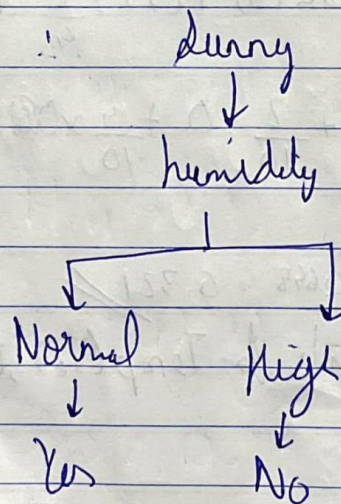 ∴ Sunny
↓
humidity
Normal High
↓ ↓
Yes No